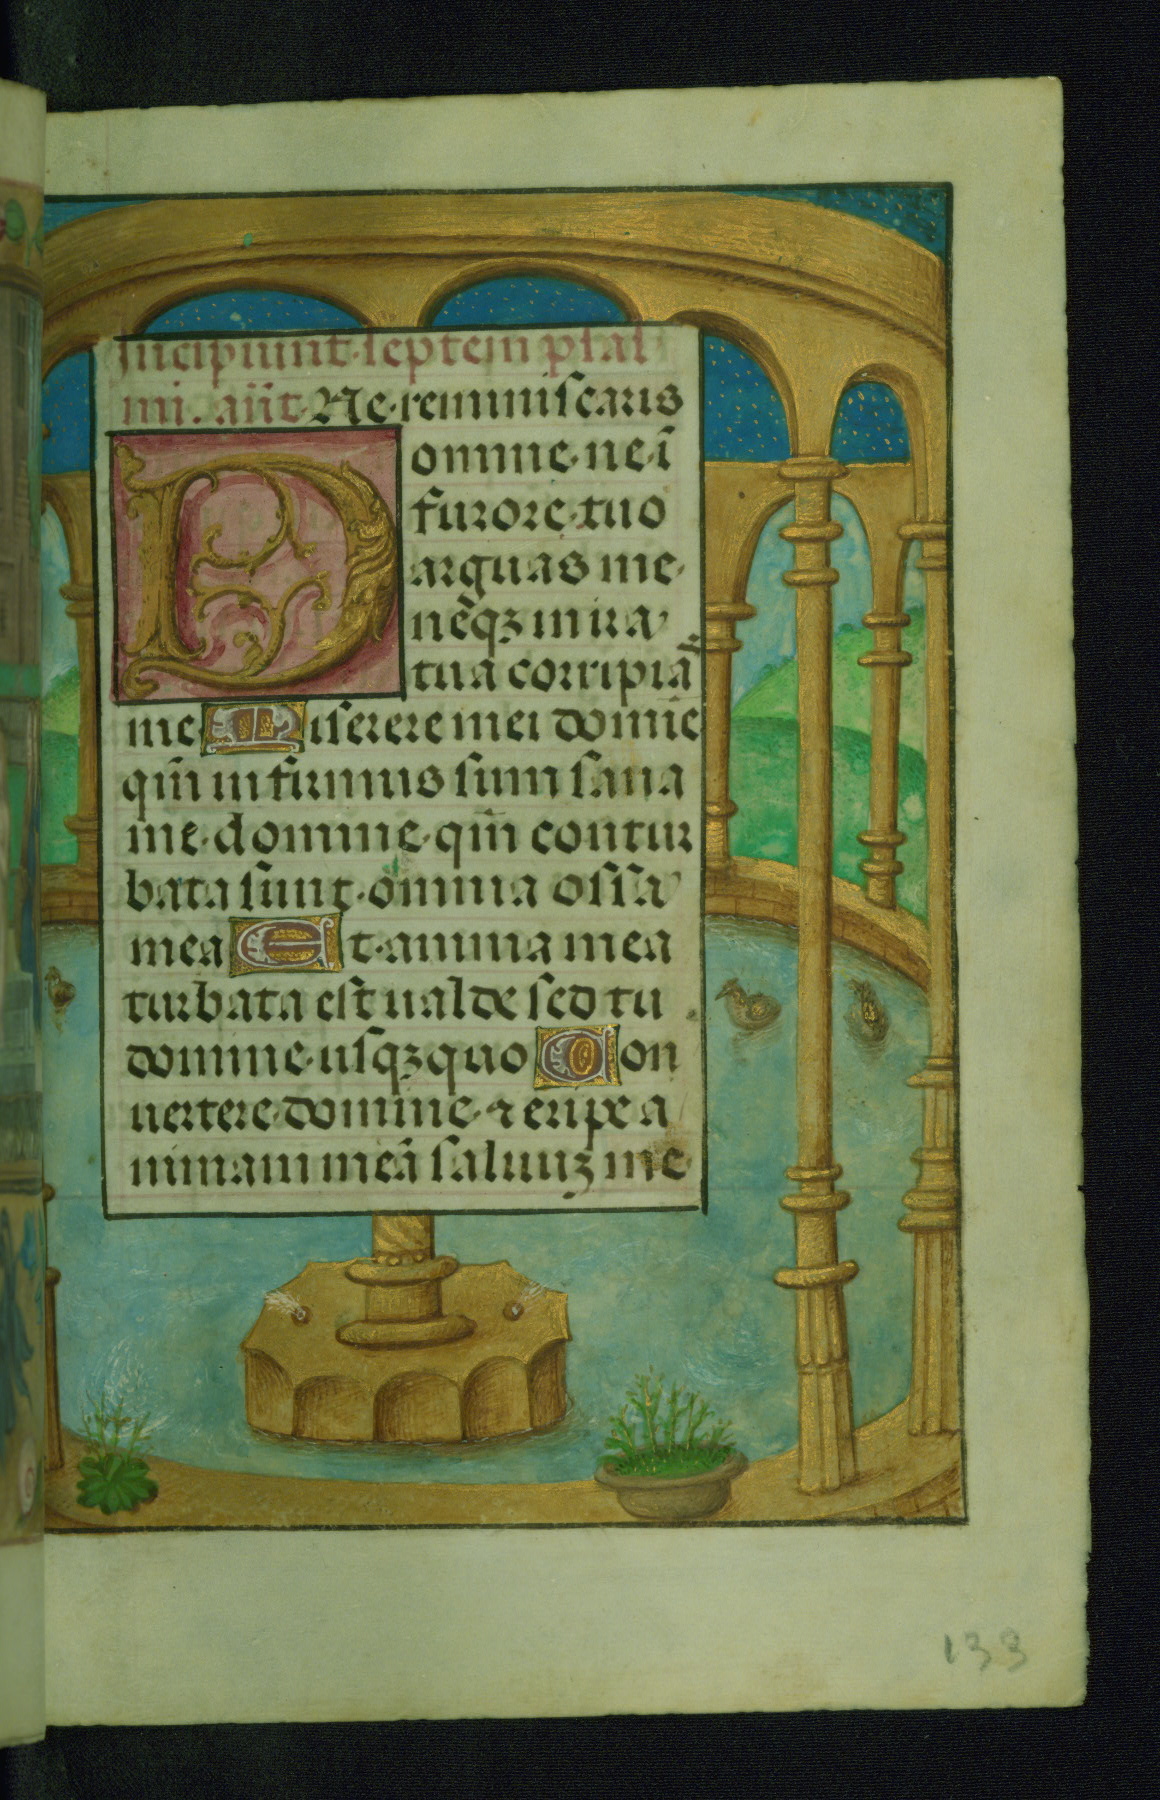 Incipiunt·septem psal
mi. añt·Ne·reminiscaris
Domine·ne·ĩ
furore·tuo
arguas me·
nẽqꝫ in ira
tua corripiã
me Miserere mei domĩe
qm̃ infirmus sum sana
me·domine·qm̃ contur
bata sunt·omnia ossa
mea Et·anima mea
turbata est ualde sed tu
domine·usqꝫ quo Con
uertere·domine·⁊ eripe a
nimam meã saluuꝫ me·
133